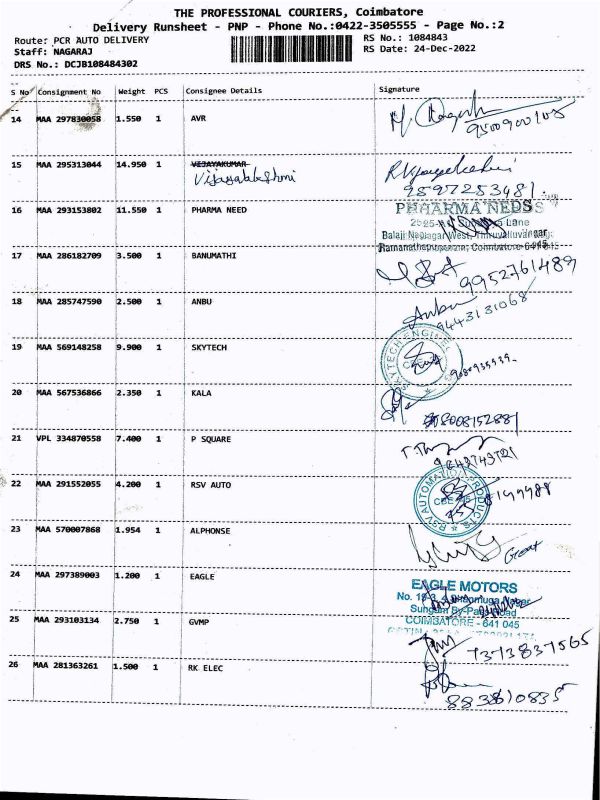 THE PROFESSIONAL COURIERS, Coimbatore
Delivery Runsheet - PNP - Phone No.:0422-3505555 - Page No.:2
Route: PCR AUTO DELIVERY RS No.: 1084843
Staff: NAGARAJ RS Date: 24-Dec-2022
DRS No.: DCJB108484302
S No Consignment No Weight PCS Consignee Details Signature
14 MAA 297830058 1.550 1 AVR
9500900108
15 MAA 295313044 14.950 1 VIJAYAKUMAR
Vijayalakshmi
9597253481.
16 MAA 293153802 11.550 1 PHARMA NEED PHARMA NEDS
Lane
Balaji Nagar West, Thiruvalluvar Nagar,
Ramanathapuram, Coimbatore-641045
17 MAA 286182709 3.500 1 BANUMATHI
9952761489
18 MAA 285747590 2.500 1 ANBU Anbu
9443131068
19 MAA 569148258 9.900 1 SKYTECH SKYTECH ENGINEE
20 MAA 567536866 2.350 1 KALA
8008152881
21 VPL 334870558 7.400 1 P SQUARE
22 MAA 291552055 4.200 1 RSV AUTO RSV AUTOMATION PRODUCTS
23 MAA 570007868 1.954 1 ALPHONSE
24 MAA 297389003 1.200 1 EAGLE EAGLE MOTORS
Sungam By-Pass Road
COIMBATORE - 641 045
25 MAA 293103134 2.750 1 GVMP
7373837565
26 MAA 281363261 1.500 1 RK ELEC
8838610835